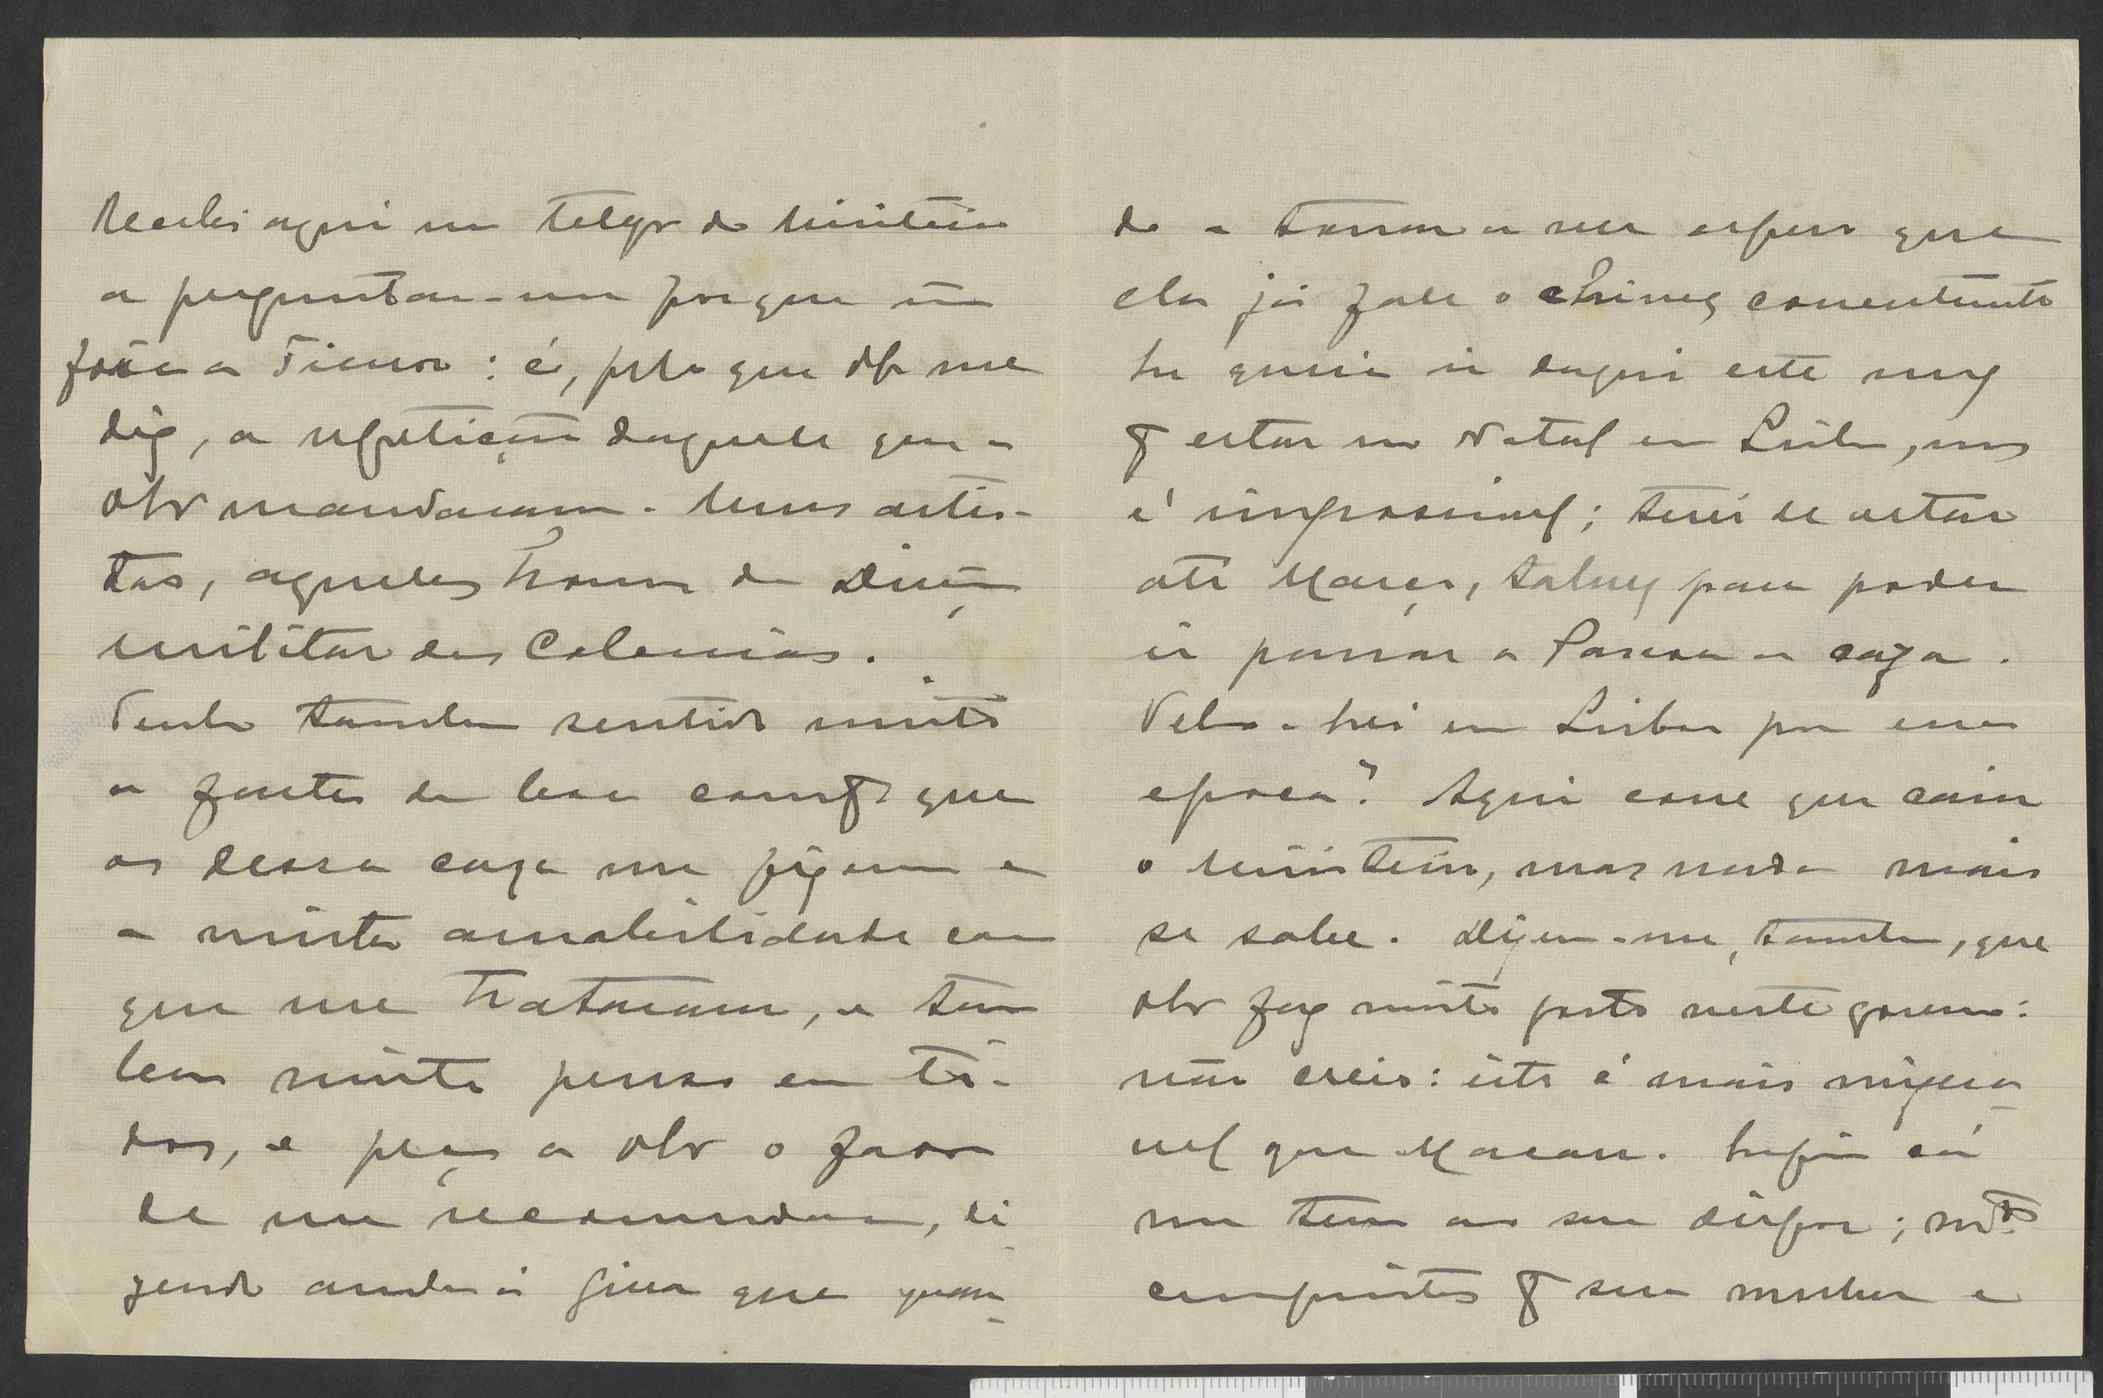 Recebi aqui um telegr do Ministerio
a perguntar-me porque não
fôra a Timor: é, pelo que V. me
diz, a repetição daquele que a
V. mandaram. Uns artis-
tas, aqueles homens da Direcção
militar das Colonias.
Tenho tambem sentido muito
a falta da boa comp.ª que
os dessa caza me fizeram e
a muita amabilidade com
que me trataram, e tam
bem muito penso em to-
dos, e peço a V. o favor
de me recomendar, di
zendo ainda á Gina que quan
do a tornar a ver espero que
ela já fale o chinez correntemente
Eu queria ir daqui este mez
p.ª estar no Natal em Lisboa, mas
é impossivel; terei de estar
até Março, talvez para poder
ir passar a Pascoa a caza.
Velo-hei em Lisboa por essa
epoca? Aqui corre que caiu
o Ministerio, mas nada mais
se sabe. Dizem-me, tambem, que
V. faz muito gosto neste governo:
não creio: isto é mais misera
vel que Macau. Enfim cá
me tem ao seu dispor; m.tos
cumprimentos p.ª sua mulher e